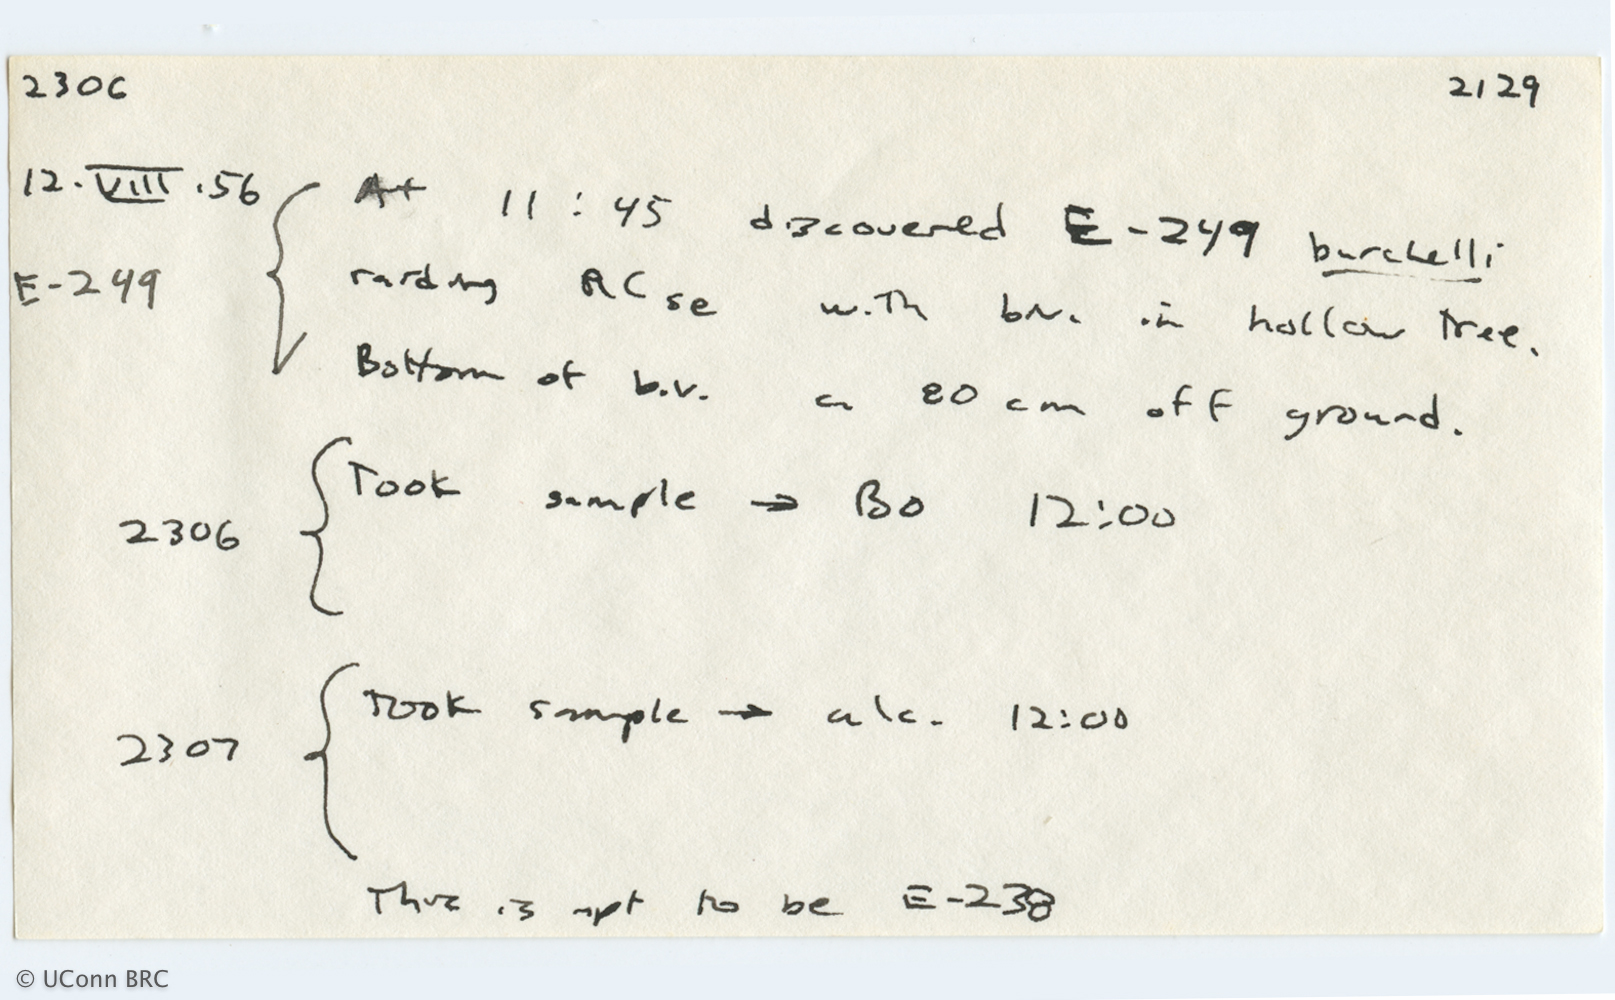 2306 2129
12.VIII.56 At 11:45 discovered E-249 burchelli
E-249 raiding RC se with biv. in hollow tree.
Bottom of b.v. ca 80 cm off ground.
2306 Took sample → Bo 12:00
2307 Took sample → alc. 12:00
This is apt to be E-238
© UConn BRC